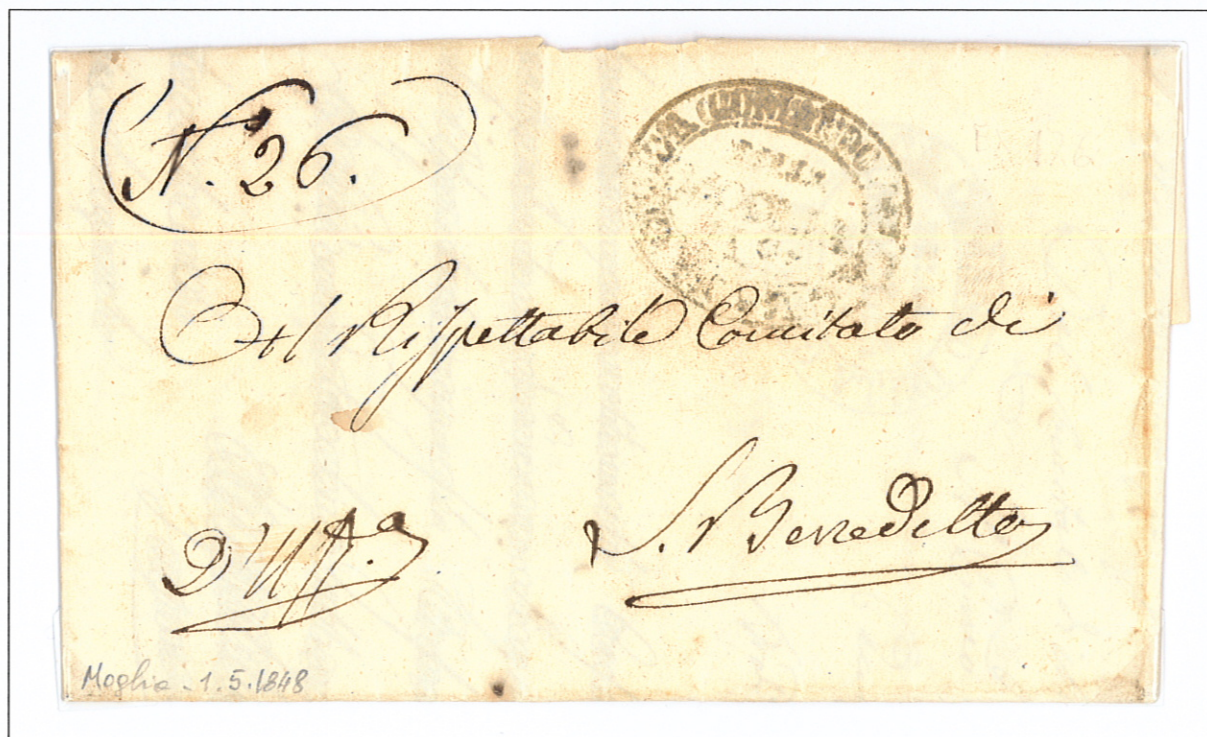 N. 26.
Al Rispettabile Comitato di
S. Benedetto
D'Uff.o
Moglia - 1.5.1848